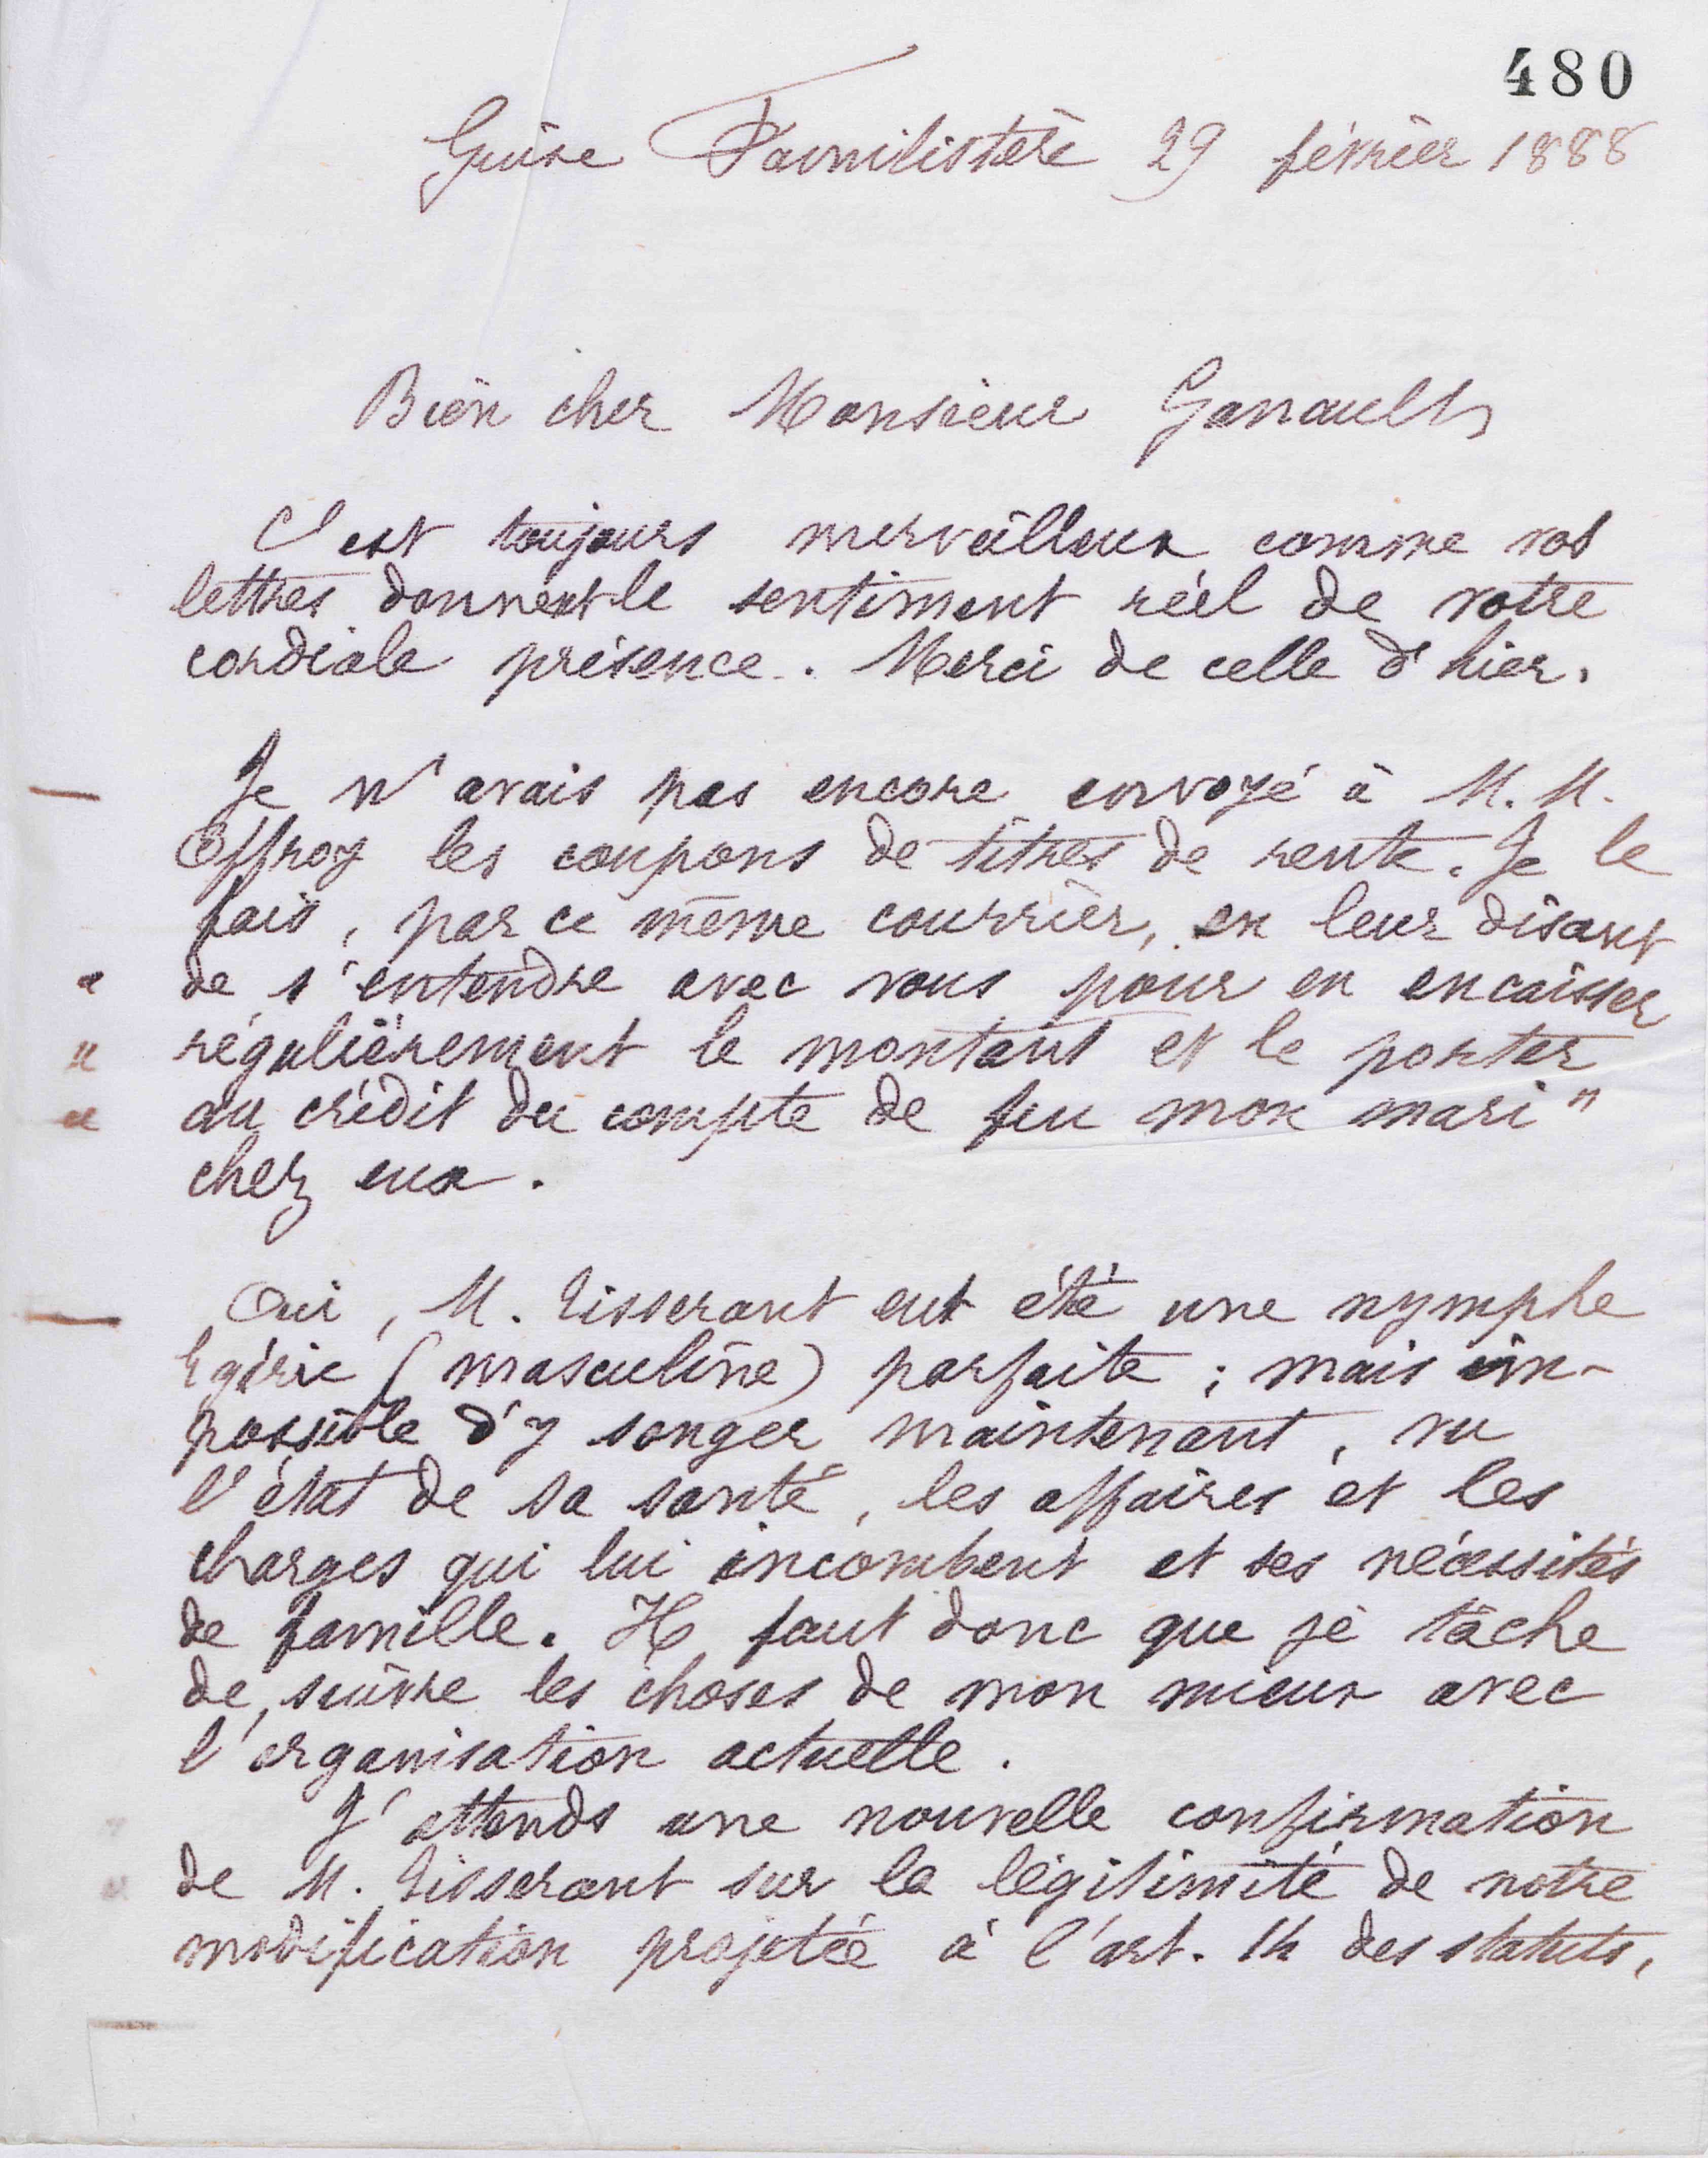 480
Guise Familistère 29 février 1888
Bien cher Monsieur Ganault,
C'est toujours merveilleux comme vos
lettres donnent le sentiment réel de votre
cordiale présence. Merci de celle d'hier.
Je n'avais pas encore envoyé à M.M.
Effroy les coupons de titres de rente. Je le
fais, par ce même courrier, en leur disant
" de s'entendre avec vous pour en encaisser
" régulièrement le montant et le porter
" au crédit du compte de feu mon mari "
chez eux.
Oui, M. Tisserant eut été une nymphe
Egérie (masculine) parfaite ; mais im-
possible d'y songer maintenant, vu
l'état de sa santé, les affaires et les
charges qui lui incombent et ses nécessités
de famille. Il faut donc que je tâche
de suivre les choses de mon mieux avec
l'organisation actuelle.
J'attends une nouvelle confirmation
de M. Tisserant sur la légitimité de notre
modification projetée à l'art. 14 des statuts,